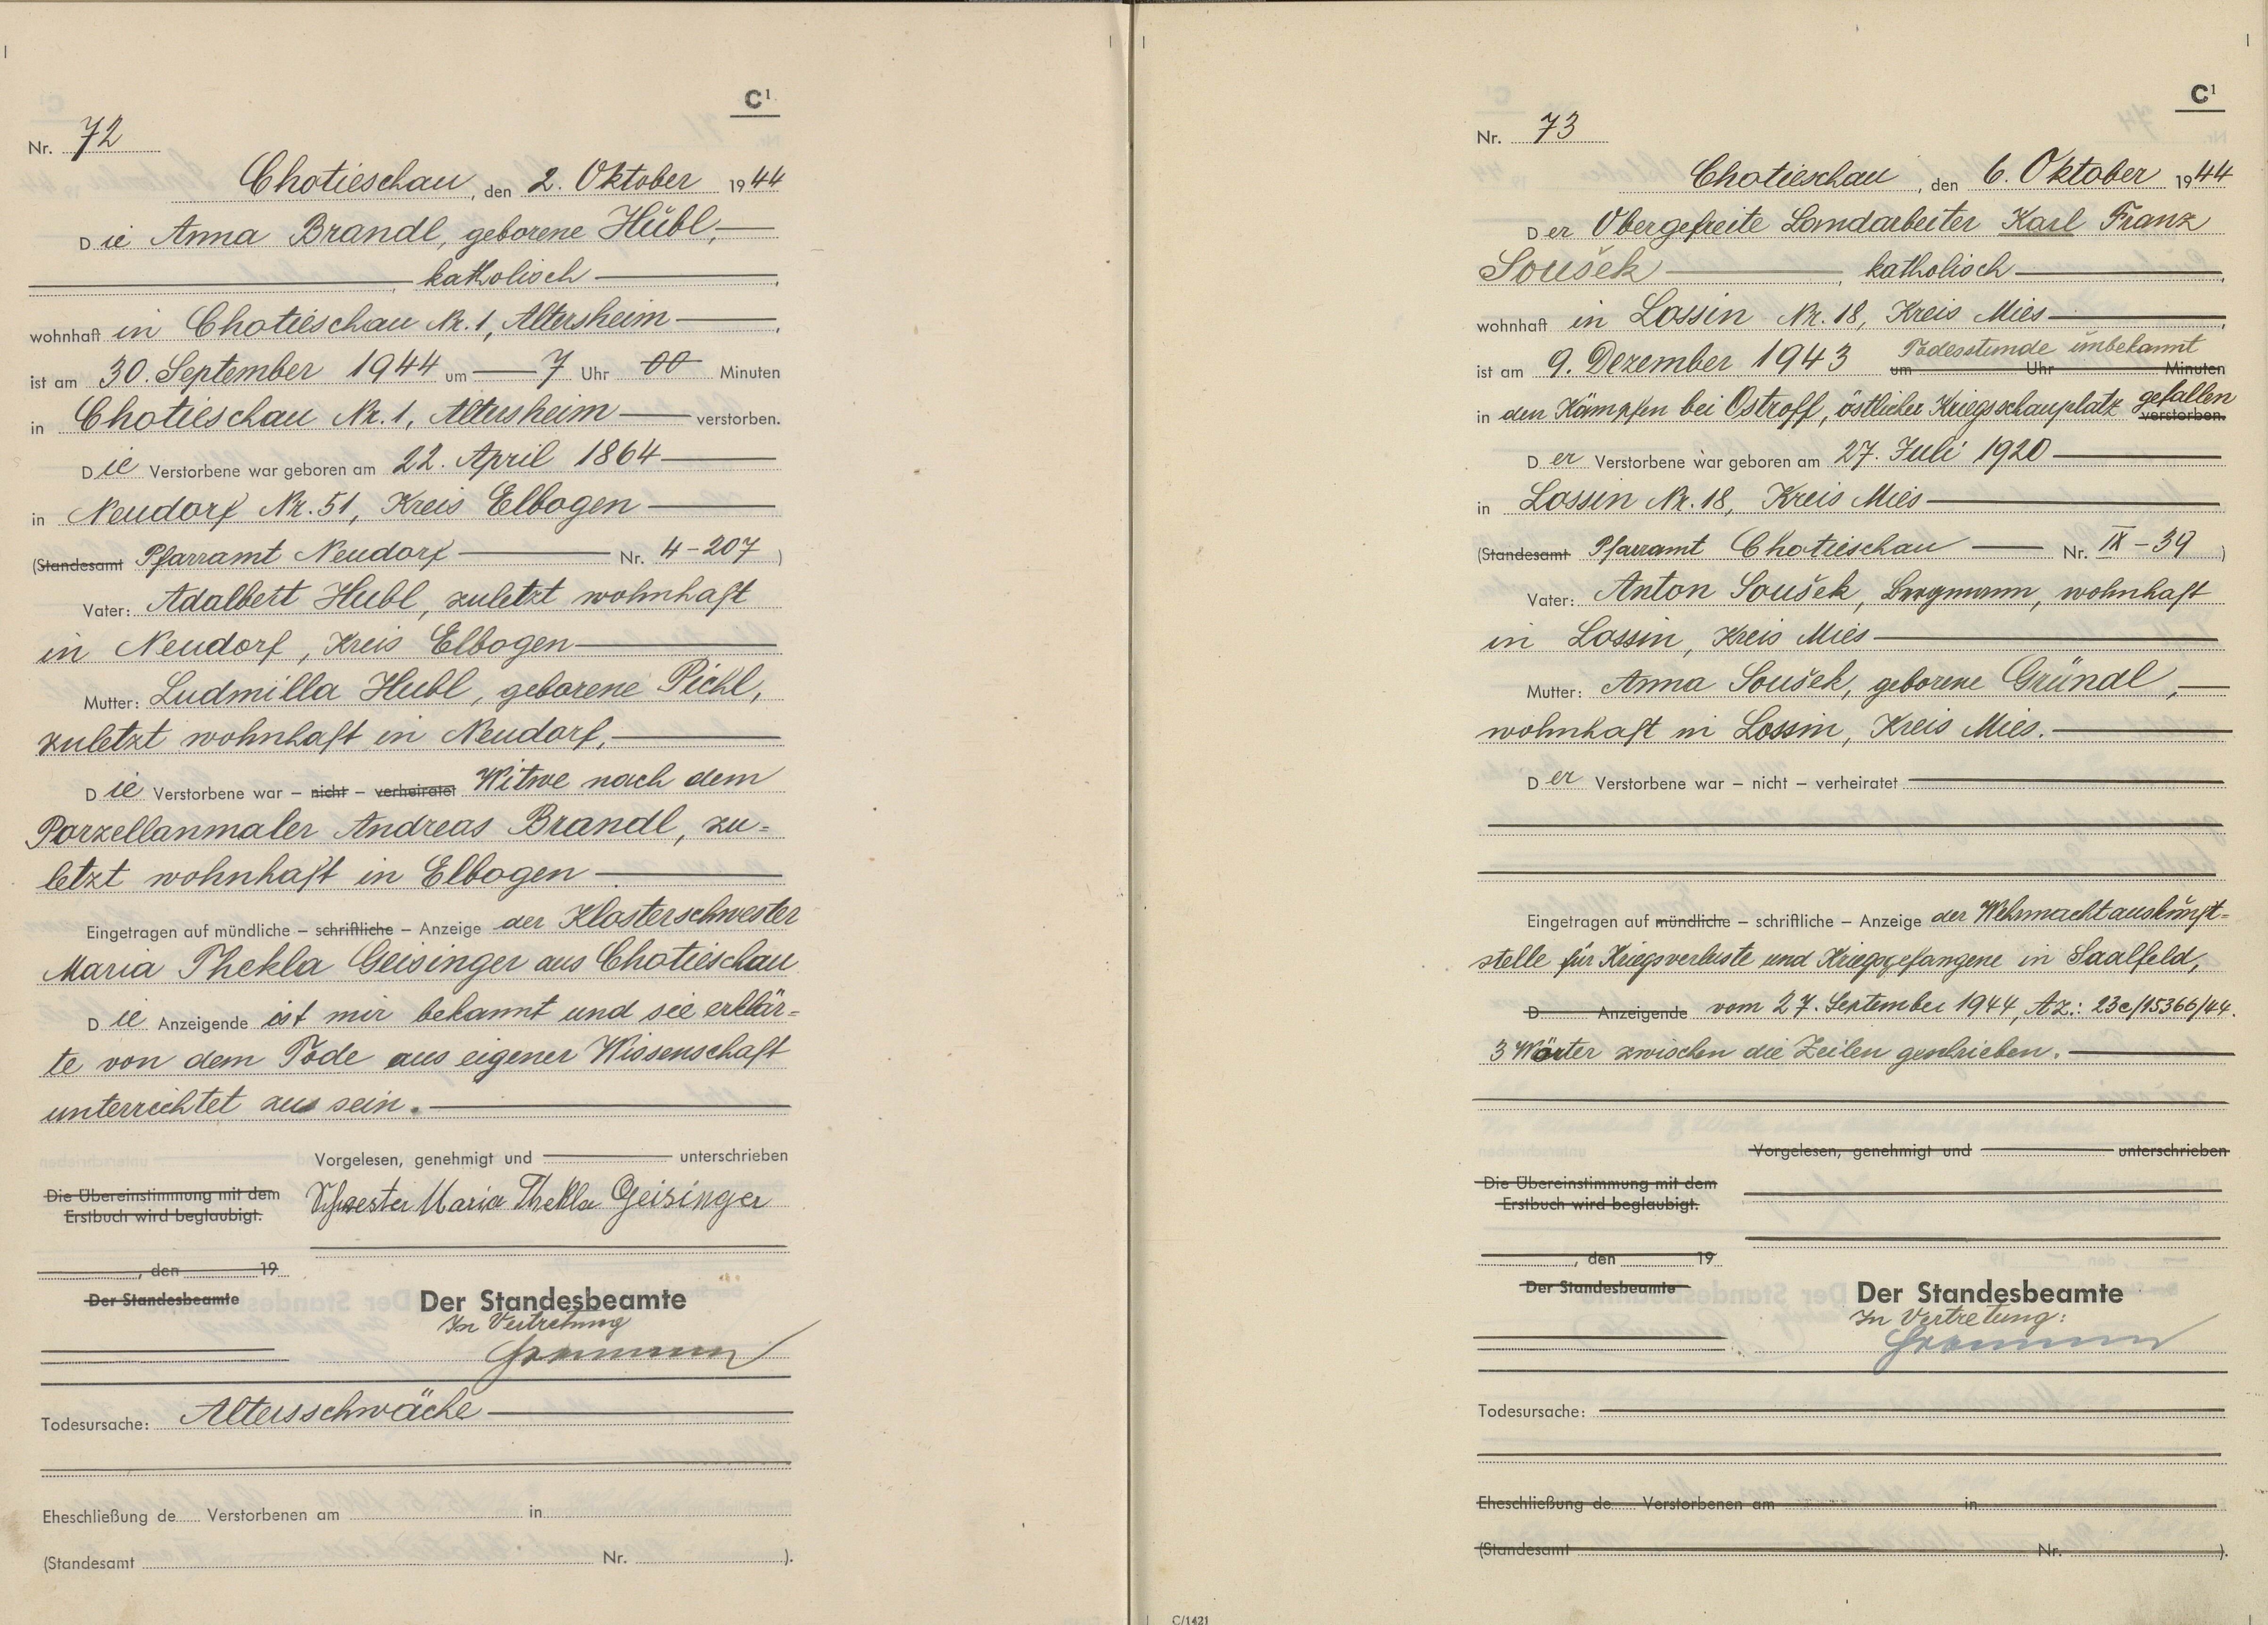 C¹
Nr. 72
Chotieschau, den 2. Oktober 1944
Die Anna Brandl, geborene Hübl,
, katholisch,
wohnhaft in Chotieschau Nr. 1, Altersheim,
ist am 30. September 1944 um 7 Uhr 00 Minuten
in Chotieschau Nr. 1, Altersheim verstorben.
Die Verstorbene war geboren am 22. April 1864
in Neudorf Nr. 51, Kreis Elbogen
(Standesamt Pfarramt Neudorf Nr. 4-207)
Vater: Adalbert Hubl, zuletzt wohnhaft
in Neudorf, Kreis Elbogen
Mutter: Ludmilla Hubl, geborene Pichl,
zuletzt wohnhaft in Neudorf,
Die Verstorbene war – nicht – verheiratet Witwe nach dem
Porzellanmaler Andreas Brandl, zu=
letzt wohnhaft in Elbogen
Eingetragen auf mündliche – schriftliche – Anzeige der Klosterschwester
Maria Thekla Geisinger aus Chotieschau
Die Anzeigende ist mir bekannt und sie erklär=
te von dem Tode aus eigener Wissenschaft
unterrichtet zu sein.
Vorgelesen, genehmigt und unterschrieben
Die Übereinstimmung mit dem
Erstbuch wird beglaubigt.
Schwester Maria Thekla Geisinger
, den 19
Der Standesbeamte
Der Standesbeamte
In Vertretung
Todesursache: Altersschwäche
Eheschließung de Verstorbenen am in
(Standesamt Nr. ).
C¹
Nr. 73
Chotieschau, den 6. Oktober 1944
Der Obergefreite Landarbeiter Karl Franz
Soušek, katholisch,
wohnhaft in Lossin Nr. 18, Kreis Mies,
Todesstunde unbekannt
ist am 9. Dezember 1943 um Uhr Minuten
gefallen
in den Kämpfen bei Ostroff, östlicher Kriegsschauplatz verstorben.
Der Verstorbene war geboren am 27. Juli 1920
in Lossin Nr. 18, Kreis Mies
(Standesamt Pfarramt Chotieschau Nr. IX-39)
Vater: Anton Soušek, Bergmann, wohnhaft
in Lossin, Kreis Mies
Mutter: Anna Soušek, geborene Gründl,
wohnhaft in Lossin, Kreis Mies.
Der Verstorbene war – nicht – verheiratet
Eingetragen auf mündliche – schriftliche – Anzeige der Wehrmachtauskunft=
stelle für Kriegsverluste und Kriegsgefangene in Saalfeld,
D Anzeigende vom 27. September 1944, Az.: 23c/15366/44.
3 Wörter zwischen die Zeilen geschrieben.
Vorgelesen, genehmigt und unterschrieben
Die Übereinstimmung mit dem
Erstbuch wird beglaubigt.
, den 19
Der Standesbeamte
Der Standesbeamte
In Vertretung:
Todesursache:
Eheschließung de Verstorbenen am in
(Standesamt Nr. ).
C/1421